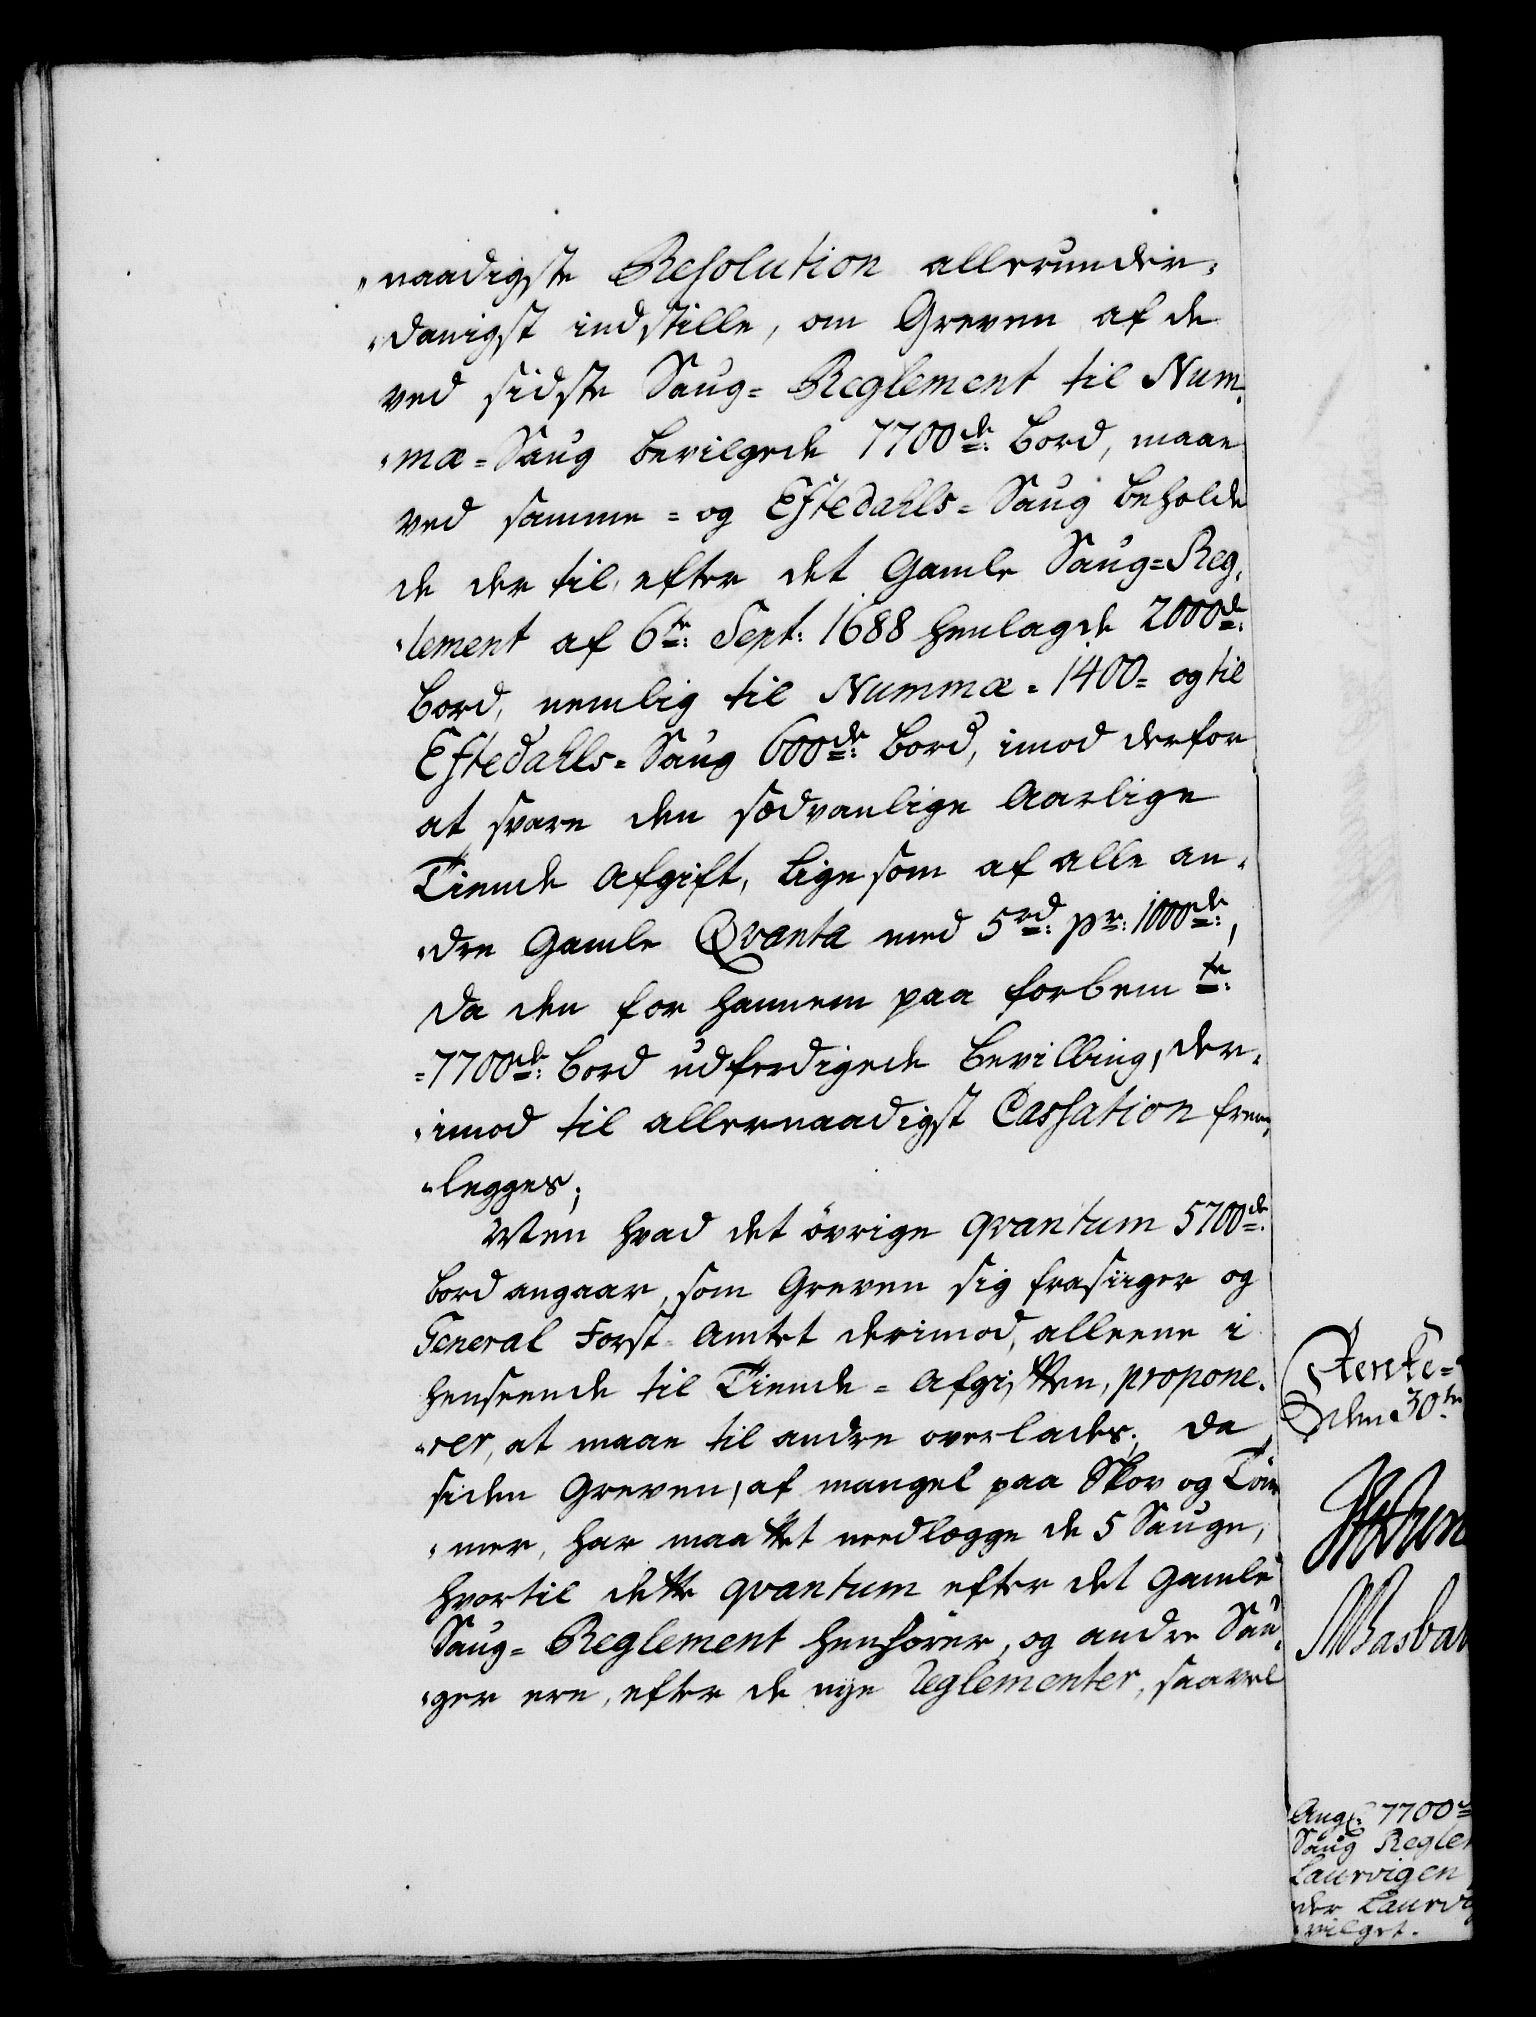 naadigste Resolution allerunder-
danigst indstille, om Greven af de
ved sidste Saug- Reglement til Num-
mæ-Saug bevilgede 7700de: Bord, maae
ved samme- og Eftedahls- Saug beholde
de der til, efter det gamle Saug-Reg-
lement af 6te: Sept: 1688 henlagde 2000de:
Bord, nemlig til Nummæ- 1400- og til
Eftedahls- Saug 600de: Bord, imod derfor
at svare den sædvanlige Aarlige
Tiende Afgift, ligesom af alle an-
dre gamle Qvanta med 5rd: pr: 1000de:,
da den for hannem paa forbemte:
7700de: Bord udferdigede Bevilling, der-
imod til allernaadigst Cassation frem-
legges;
Men hvad det övrige qvantum 5700de:
Bord angaar, som Greven sig frasiiger og
General Forst- Amtet derimod, alleene i
henseende til Tiende- Afgiften, propone-
rer, at maae til andre overlades; da
siden Greven, af mangel paa Skov og Töm-
mer, har maattet nedlægge de 5 Sauge,
hvortil dette qvantum efter det gamle
Saug- Reglement henhörer, og andre Sau-
ger ere, efter de nye Reglementer, saavel
Rente-
den 30te
Ang: 7700de
Saug Regle
Laurvigen
der Laurvi
vilget.